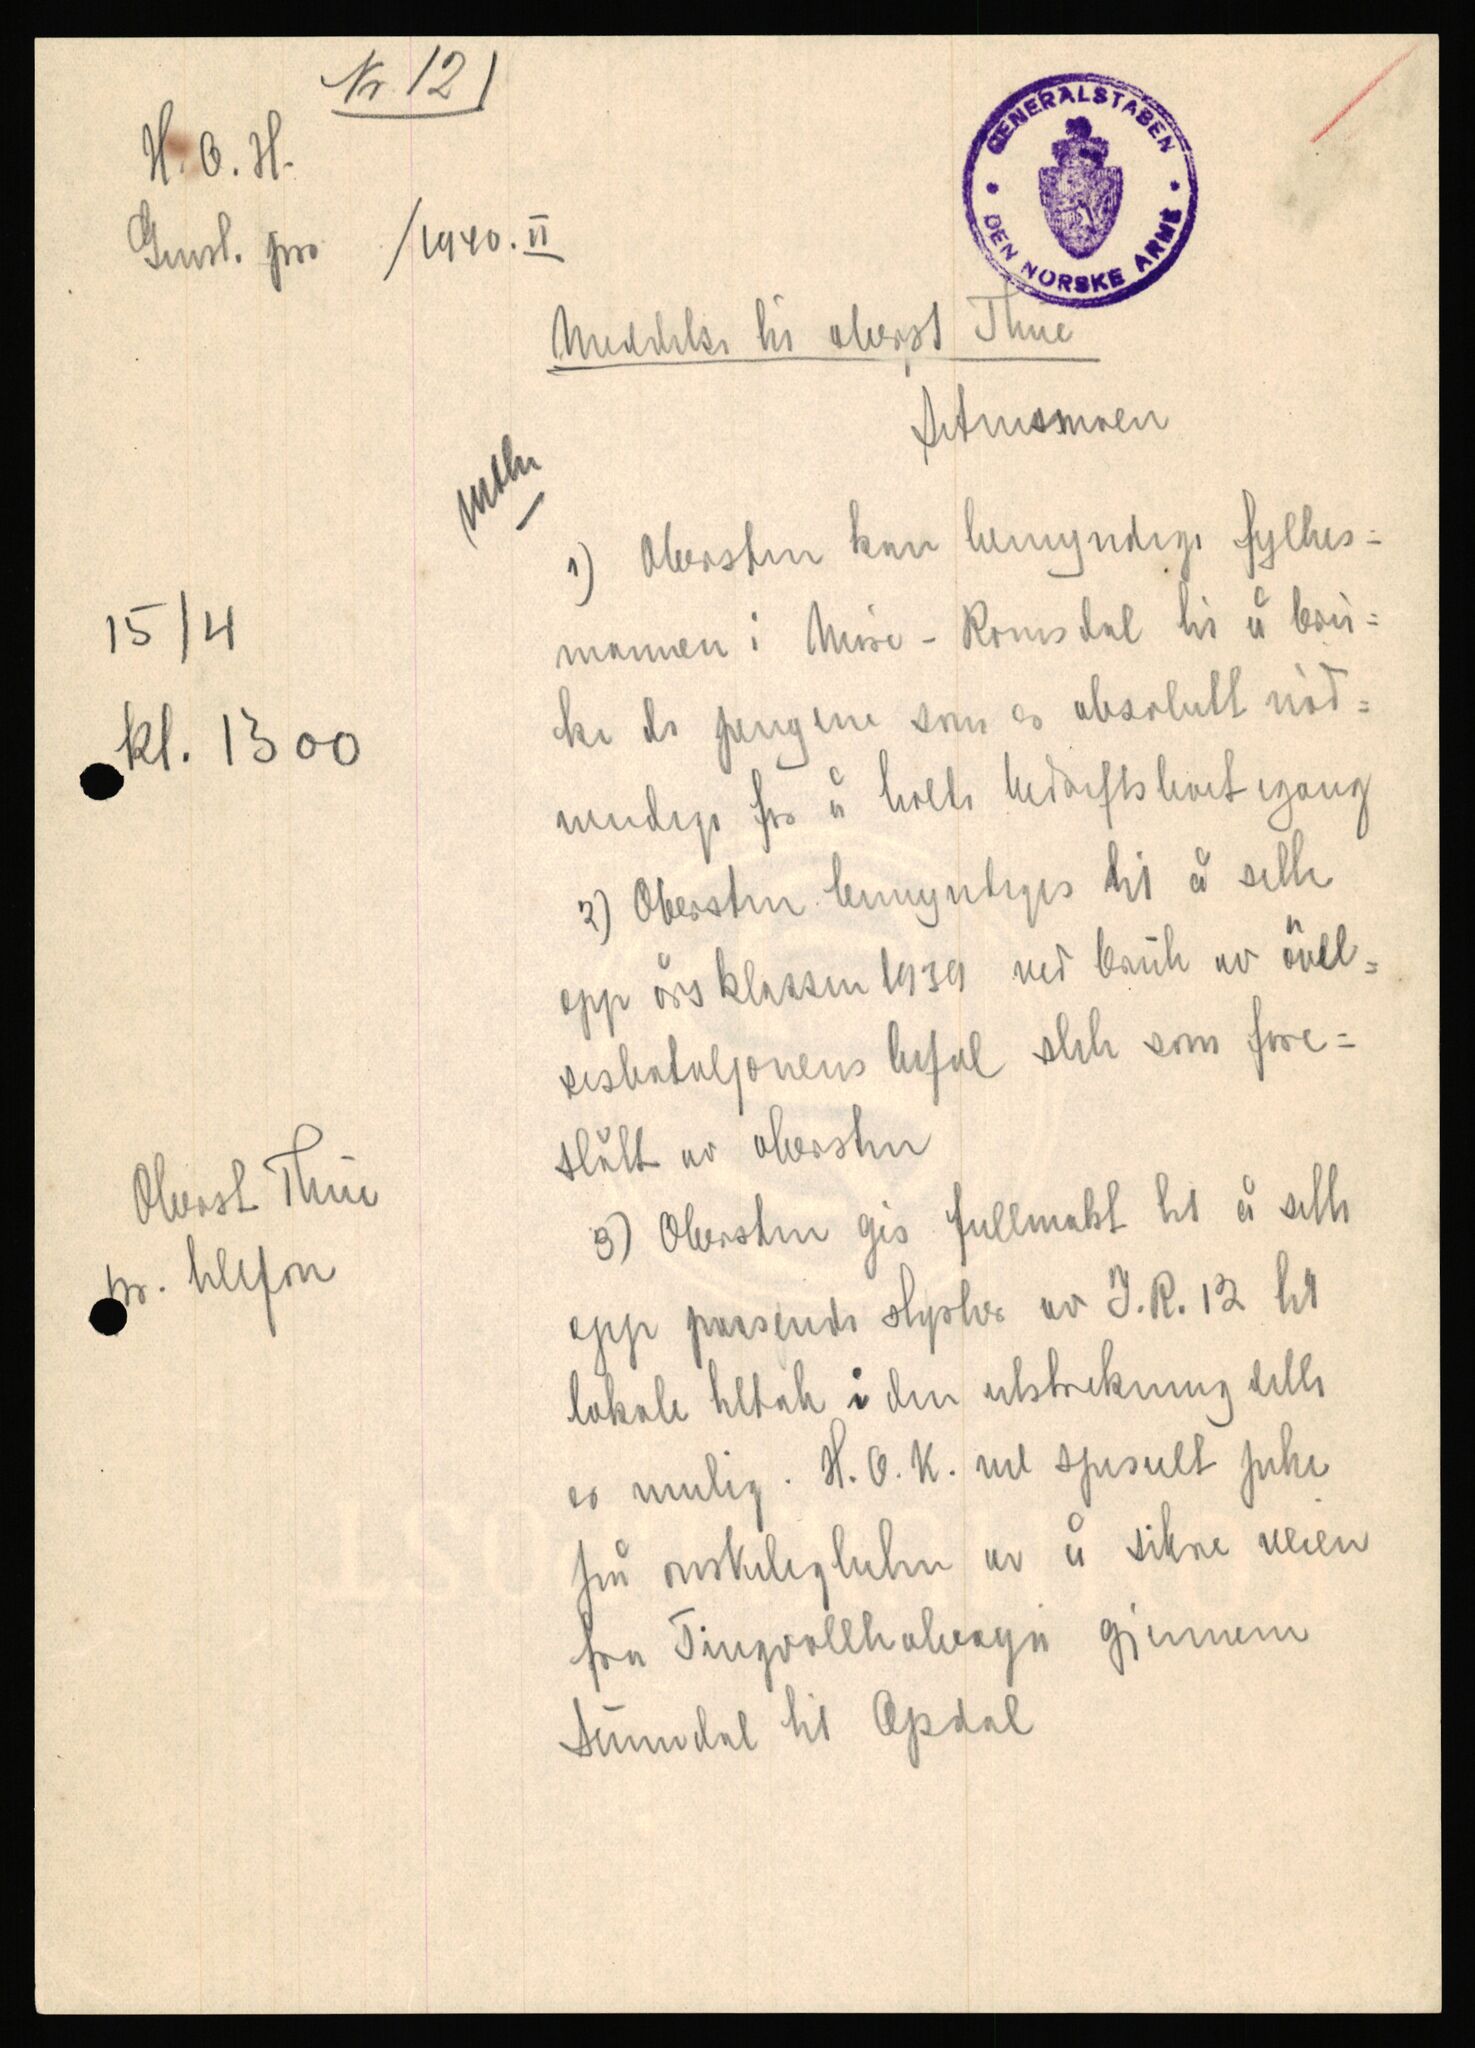 Nr. 12
H. O. K.
Gnrl. pro /1940. II
GENERALSTABEN
DEN NORSKE ARMÉ
Meddeles til oberst Thue
Setnesmoen
15/4
kl. 1300
1) Obersten kan bemyndige fylkes=
mannen i Møre - Romsdal til å bru=
ke de pengene som er absolutt nød=
vendige for å holde bedriftslivet igang
2) Obersten bemyndiges til å sette
opp årsklassen 1939 ved bruk av øvel=
sesbataljonens befal slik som fore=
slått av obersten
Oberst Thue
pr. telefon
3) Obersten gis fullmakt til å sette
opp passende styrker av I.R. 12 til
lokale tiltak i den utstrekning dette
er mulig. H. O. K. vil spesielt peke
på ønskeligheten av å sikre veien
fra Tingvollhalvøya gjennem
Sunndal til Opdal